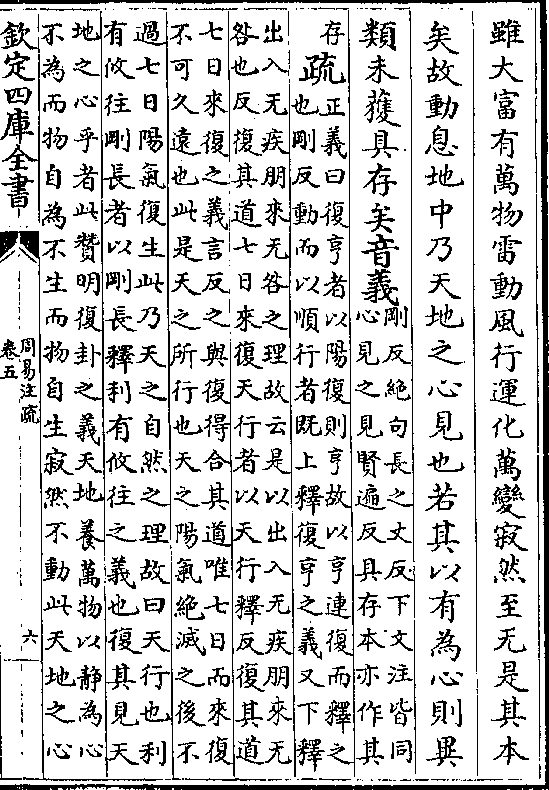 雖大富有萬物雷動風行運化萬變寂然至无是其本
矣故動息地中乃天地之心見也若其以有為心則異
類未獲具存矣音義剛反絕句長之丈反下文注皆同
心見之見賢遍反具存本亦作其
存疏正義曰復亨者以陽復則亨故以亨連復而釋之
也剛反動而以順行者既上釋復亨之義又下釋
出入无疾朋來无咎之理故云是以出入无疾朋來无
咎也反復其道七日來復天行者以天行釋反復其道
七日來復之義言反之與復得合其道唯七日而來復
不可久遠也此是天之所行也天之陽氣絕滅之後不
過七日陽氣復生此乃天之自然之理故曰天行也利
有攸往剛長者以剛長釋利有攸往之義也復其見天
地之心乎者此贊明復卦之義天地養萬物以靜為心
不為而物自為不生而物自生寂然不動此天地之心
欽定四庫全書
周易注疏
卷五
六